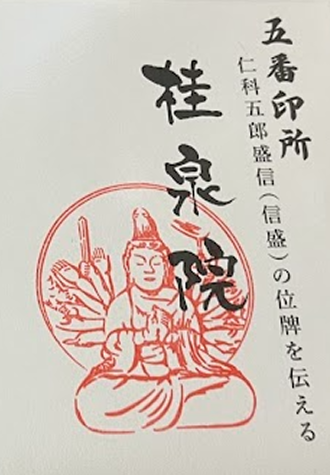 五番印所
仁科五郎盛信(信盛)の位牌を伝える
桂泉院